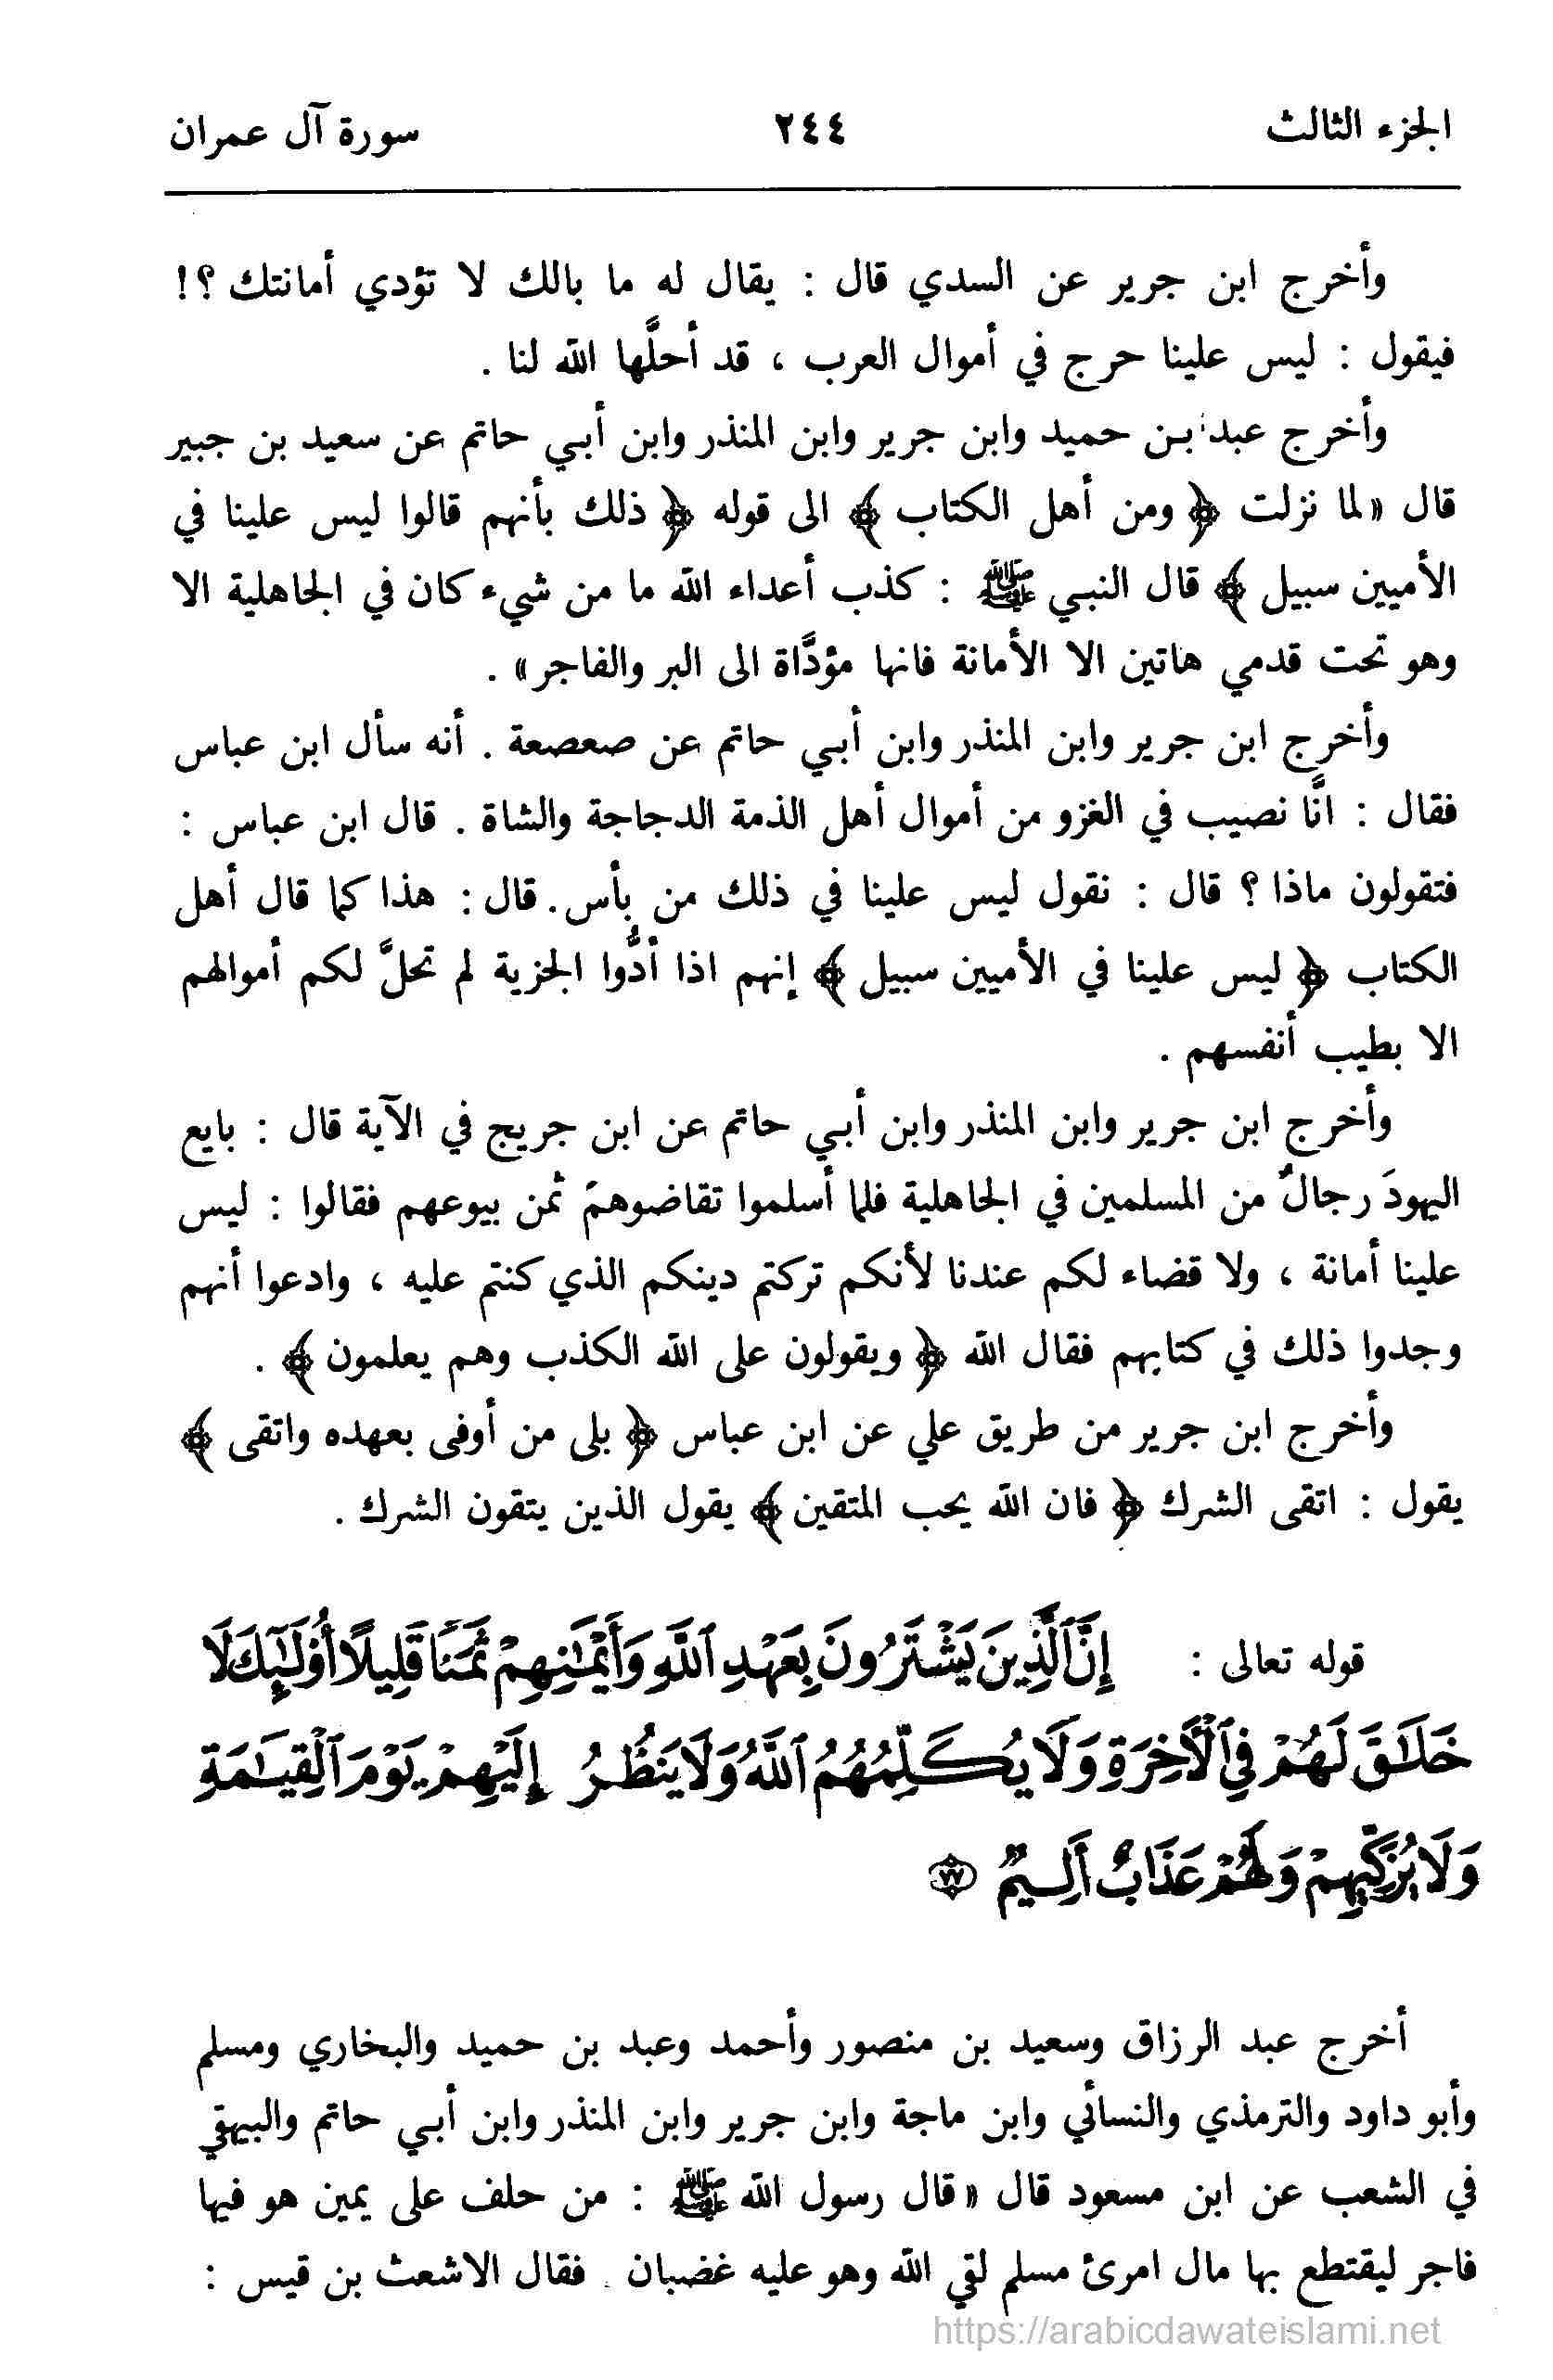 الجزء الثالث ٢٤٤ سورة آل عمران
وأخرج ابن جرير عن السدي قال : يقال له ما بالك لا تؤدي أمانتك ؟!
فيقول : ليس علينا حرج في أموال العرب ، قد أحلَّها الله لنا .
وأخرج عبد بن حميد وابن جرير وابن المنذر وابن أبي حاتم عن سعيد بن جبير
قال «لما نزلت ﴿ ومن أهل الكتاب ﴾ الى قوله ﴿ ذلك بأنهم قالوا ليس علينا في
الأميين سبيل ﴾ قال النبي ﷺ : كذب أعداء الله ما من شيء كان في الجاهلية الا
وهو تحت قدمي هاتين الا الأمانة فانها مؤدَّاة الى البر والفاجر» .
وأخرج ابن جرير وابن المنذر وابن أبي حاتم عن صعصعة . أنه سأل ابن عباس
فقال : انَّا نصيب في الغزو من أموال أهل الذمة الدجاجة والشاة . قال ابن عباس :
فتقولون ماذا ؟ قال : نقول ليس علينا في ذلك من بأس. قال : هذا كما قال أهل
الكتاب ﴿ ليس علينا في الأميين سبيل ﴾ إنهم اذا أدُّوا الجزية لم تحلَّ لكم أموالهم
الا بطيب أنفسهم .
وأخرج ابن جرير وابن المنذر وابن أبي حاتم عن ابن جريج في الآية قال : بايع
اليهودَ رجالٌ من المسلمين في الجاهلية فلما أسلموا تقاضوهم ثمن بيوعهم فقالوا : ليس
علينا أمانة ، ولا قضاء لكم عندنا لأنكم تركتم دينكم الذي كنتم عليه ، وادعوا أنهم
وجدوا ذلك في كتابهم فقال الله ﴿ ويقولون على الله الكذب وهم يعلمون ﴾ .
وأخرج ابن جرير من طريق علي عن ابن عباس ﴿ بلى من أوفى بعهده واتقى ﴾
يقول : اتقى الشرك ﴿ فان الله يحب المتقين ﴾ يقول الذين يتقون الشرك .
قوله تعالى : إِنَّ ٱلَّذِينَ يَشْتَرُونَ بِعَهْدِ ٱللَّهِ وَأَيْمَٰنِهِمْ ثَمَنًا قَلِيلًا أُوْلَٰٓئِكَ لَا
خَلَٰقَ لَهُمْ فِي ٱلْأَخِرَةِ وَلَا يُكَلِّمُهُمُ ٱللَّهُ وَلَا يَنظُرُ إِلَيْهِمْ يَوْمَ ٱلْقِيَٰمَةِ
وَلَا يُزَكِّيهِمْ وَلَهُمْ عَذَابٌ أَلِيمٌ ٧٧
أخرج عبد الرزاق وسعيد بن منصور وأحمد وعبد بن حميد والبخاري ومسلم
وأبو داود والترمذي والنسائي وابن ماجة وابن جرير وابن المنذر وابن أبي حاتم والبيهقي
في الشعب عن ابن مسعود قال «قال رسول الله ﷺ : من حلف على يمين هو فيها
فاجر ليقتطع بها مال امرئ مسلم لقي الله وهو عليه غضبان . فقال الاشعث بن قيس :
https://arabicdawateislami.net